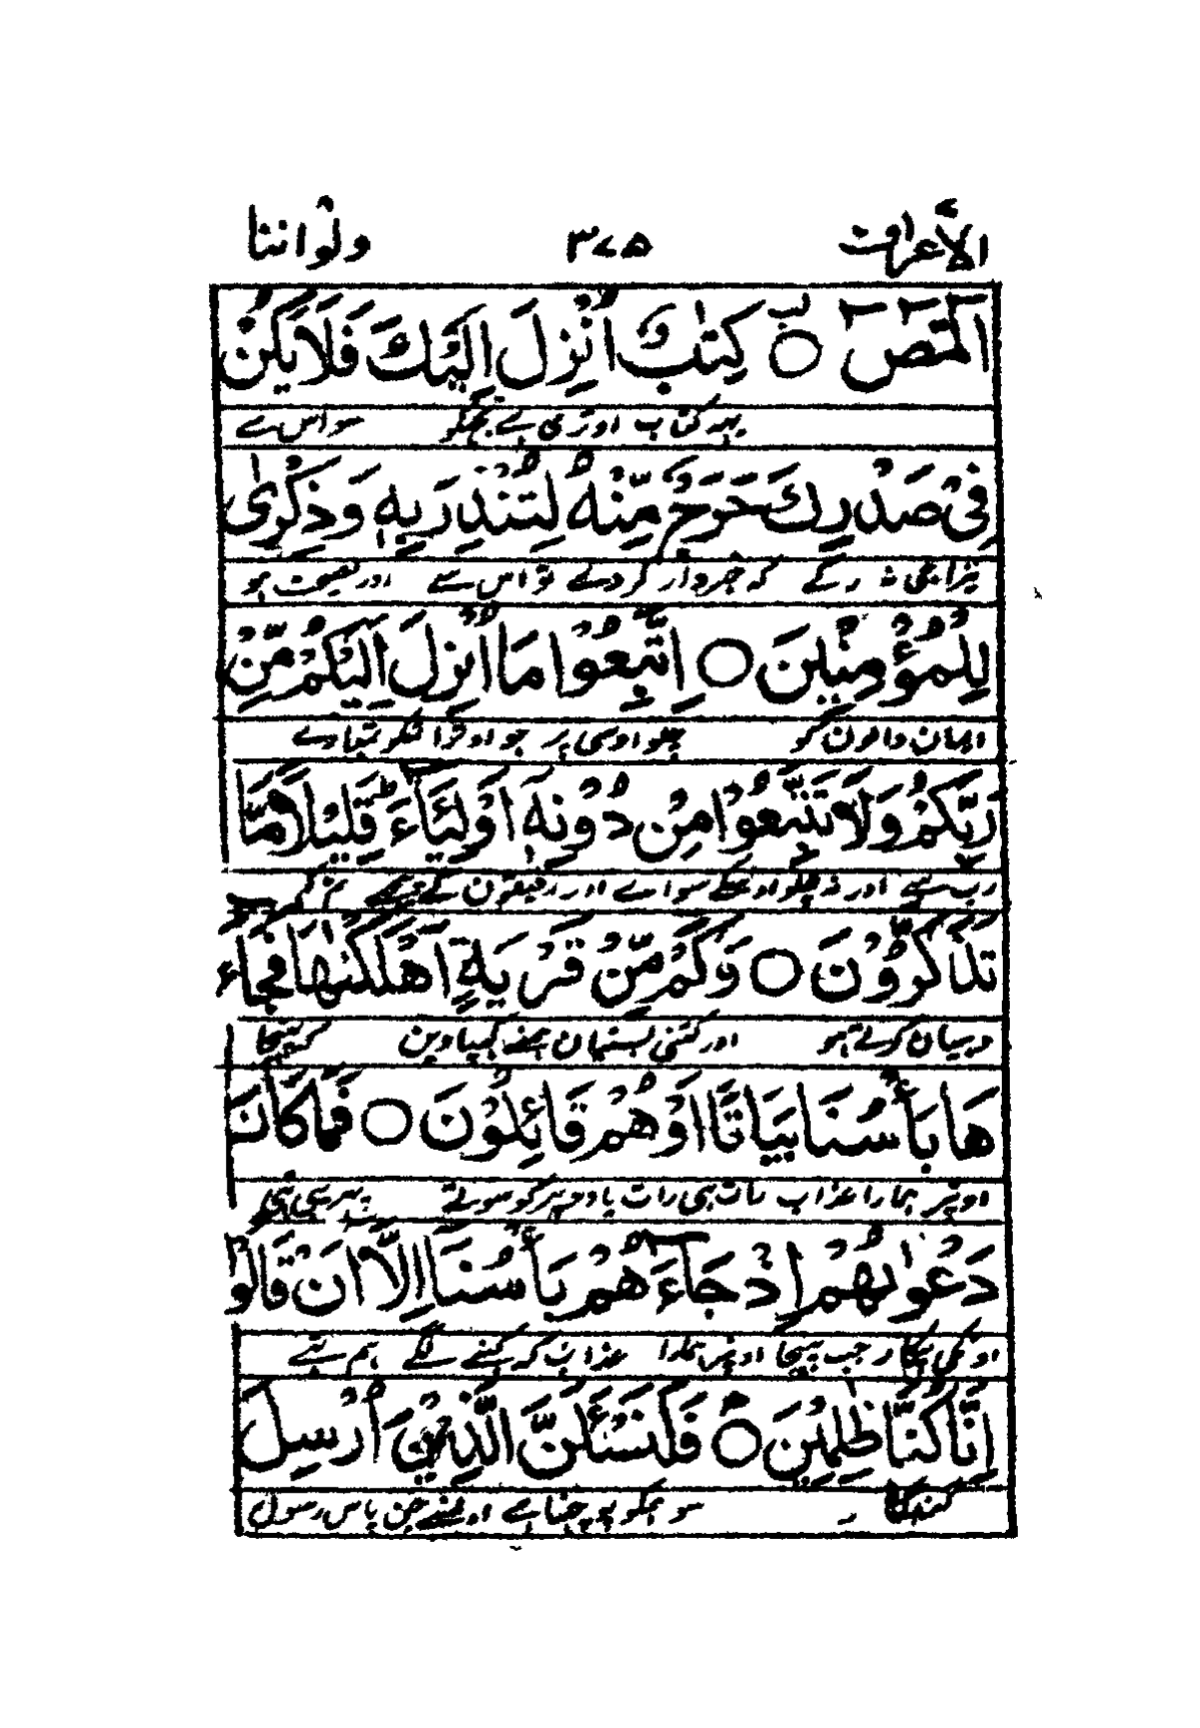 الاعراف ٣٧٥ ولواننا
الٓمّٓصٓ ۝ كِتٰبٌ اُنْزِلَ اِلَيْكَ فَلَا يَكُنْ
یہہ کتاب اوتری ہے تجھکو سو اس سے
فِیْ صَدْرِكَ حَرَجٌ مِّنْهُ لِتُنْذِرَ بِهٖ وَذِكْرٰی
تیرا جی نہ رکے کہ خبردار کردے تو اس سے اور نصیحت ہو
لِلْمُؤْمِنِيْنَ ۝ اِتَّبِعُوْا مَا اُنْزِلَ اِلَيْكُمْ مِّنْ
ایمان والون کو چلو اوسی پر جو اوترا تمکو تمہارے
رَبِّكُمْ وَلَا تَتَّبِعُوْا مِنْ دُوْنِهٖٓ اَوْلِيَآءَ ؕ قَلِيْلًا مَّا
رب سے اور نہ چلو اوسکے سوائے اور رفیقون کے پیچھے تم کم
تَذَكَّرُوْنَ ۝ وَكَمْ مِّنْ قَرْيَةٍ اَهْلَكْنٰهَا فَجَآءَ
دہیان کرتے ہو اور کتنی بستیان ہمنے کہپا دین کہ پہنچا
هَا بَاْسُنَا بَيَاتًا اَوْ هُمْ قَآئِلُوْنَ ۝ فَمَا كَانَ
اونپر ہمارا عذاب رات ہی رات یا دوپہر کو سوتے پہر یہی تہی
دَعْوٰىهُمْ اِذْ جَآءَهُمْ بَاْسُنَآ اِلَّآ اَنْ قَالُوْٓا
اونکی پکار جب پہنچا اونپر ہمارا عذاب کہ کہنے لگے ہم تہے
اِنَّا كُنَّا ظٰلِمِيْنَ ۝ فَلَنَسْئَلَنَّ الَّذِيْنَ اُرْسِلَ
گنہگار سو ہمکو پوچہنا ہے اونسے جن پاس رسول